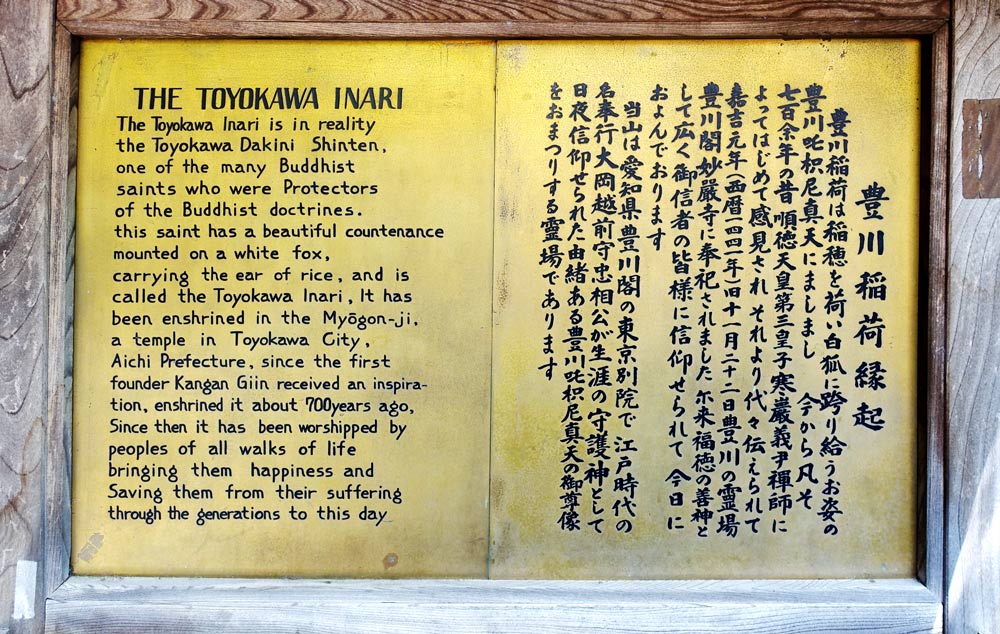 THE TOYOKAWA INARI
The Toyokawa Inari is in reality
the Toyokawa Dakini Shinten,
one of the many Buddhist
saints who were Protectors
of the Buddhist doctrines.
this saint has a beautiful countenance
mounted on a white fox,
carrying the ear of rice, and is
called the Toyokawa Inari, It has
been enshrined in the Myōgon-ji,
a temple in Toyokawa City,
Aichi Prefecture, since the first
founder Kangan Giin received an inspira-
tion, enshrined it about 700years ago,
Since then it has been worshipped by
peoples of all walks of life
bringing them happiness and
Saving them from their suffering
through the generations to this day
豊川稲荷縁起
豊川稲荷は稲穂を荷い白狐に跨り給うお姿の
豊川吒枳尼真天にましまし 今から凡そ
七百余年の昔 順徳天皇第三皇子寒巖義尹禪師に
よってはじめて感見され それより代々伝えられて
嘉吉元年(西暦一四四一年)旧十一月二十二日豊川の霊場
豊川閣妙嚴寺に奉祀されました 尓来福徳の善神と
して広く御信者の皆様に信仰せられて 今日に
およんでおります
当山は愛知県豊川閣の東京別院で 江戸時代の
名奉行大岡越前守忠相公が生涯の守護神として
日夜信仰せられた由緒ある豊川吒枳尼真天の御尊像
をおまつりする霊場であります